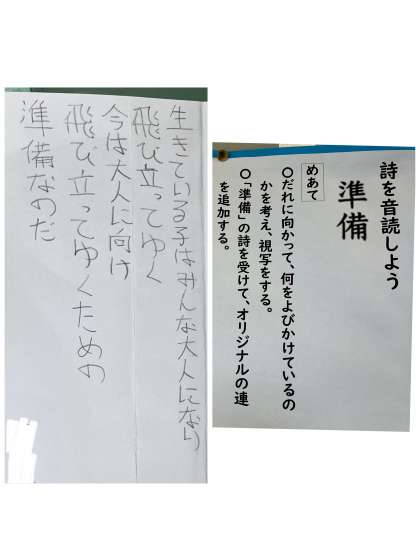 生きている子はみんな大人になり
飛び立ってゆく
今は大人に向け
飛び立ってゆくための
準備なのだ
詩を音読しよう
準備
めあて
○だれに向かって、何をよびかけているの
かを考え、視写をする。
○「準備」の詩を受けて、オリジナルの連
を追加する。